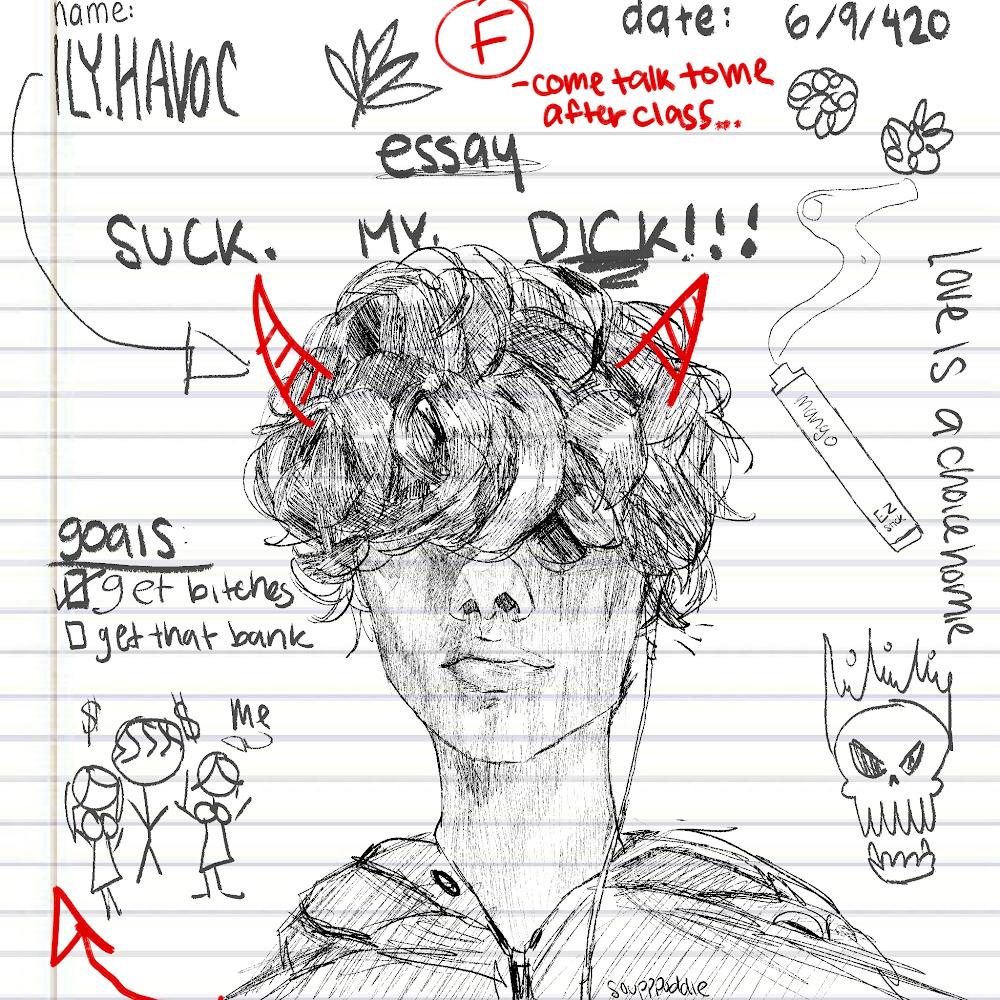 name:
ILY.HAVOC
F
date: 6/9/420
-come talk to me
after class...
essay
SUCK. MY. DICK!!!
love is a choice homie
mango
EZ
STICK
goals:
get bitches
get that bank
$ $
me
soupppuddle